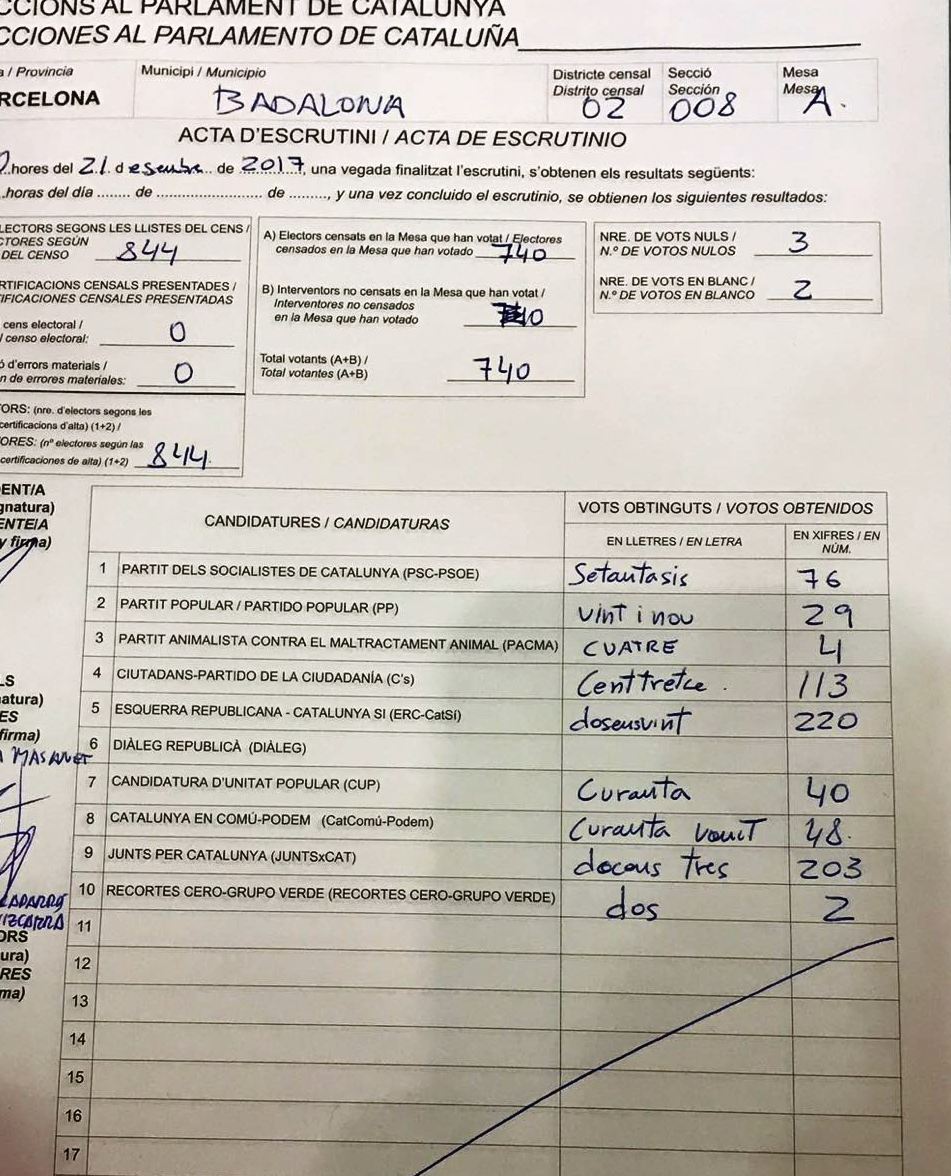 CCIONS AL PARLAMENT DE CATALUNYA
CCIONES AL PARLAMENTO DE CATALUÑA
a / Provincia
RCELONA
Municipi / Municipio
BADALONA
Districte censal
Distrito censal
02
Secció
Sección
008
Mesa
Mesa
A.
ACTA D'ESCRUTINI / ACTA DE ESCRUTINIO
hores del 21 d esembre de 2017, una vegada finalitzat l'escrutini, s'obtenen els resultats següents:
.horas del día ........ de ............................ de ........., y una vez concluido el escrutinio, se obtienen los siguientes resultados:
LECTORS SEGONS LES LLISTES DEL CENS /
CTORES SEGÚN
DEL CENSO 844
RTIFICACIONS CENSALS PRESENTADES /
IFICACIONES CENSALES PRESENTADAS
cens electoral /
censo electoral: 0
ó d'errors materials /
n de errores materiales: 0
TORS: (nre. d'electors segons les
certificacions d'alta) (1+2) /
ORES: (nº electores según las
certificaciones de alta) (1+2) 844
A) Electors censats en la Mesa que han votat / Electores
censados en la Mesa que han votado 740
B) Interventors no censats en la Mesa que han votat /
Interventores no censados
en la Mesa que han votado 0
Total votants (A+B) /
Total votantes (A+B) 740
NRE. DE VOTS NULS /
N.º DE VOTOS NULOS 3
NRE. DE VOTS EN BLANC /
N.º DE VOTOS EN BLANCO 2
ENT/A
gnatura)
ENTE/A
y firma)
CANDIDATURES / CANDIDATURAS
VOTS OBTINGUTS / VOTOS OBTENIDOS
EN LLETRES / EN LETRA
EN XIFRES / EN NÚM.
1 PARTIT DELS SOCIALISTES DE CATALUNYA (PSC-PSOE) Setantasis 76
2 PARTIT POPULAR / PARTIDO POPULAR (PP) Vint i nou 29
3 PARTIT ANIMALISTA CONTRA EL MALTRACTAMENT ANIMAL (PACMA) CUATRE 4
4 CIUTADANS-PARTIDO DE LA CIUDADANÍA (C's) Centtretce. 113
5 ESQUERRA REPUBLICANA - CATALUNYA SI (ERC-CatSí) dosensvint 220
6 DIÀLEG REPUBLICÀ (DIÀLEG)
7 CANDIDATURA D'UNITAT POPULAR (CUP) Curanta 40
8 CATALUNYA EN COMÚ-PODEM (CatComú-Podem) Curanta vouit 48.
9 JUNTS PER CATALUNYA (JUNTSxCAT) docens tres 203
10 RECORTES CERO-GRUPO VERDE (RECORTES CERO-GRUPO VERDE) dos 2
11
12
13
14
15
16
17
LS
natura)
ES
firma)
MASANET
ORS
ura)
RES
ma)